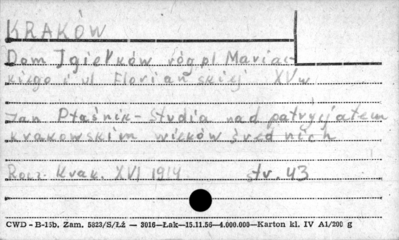 KRAKÓW
Dom Igiełków róg pl Marjac-
kiego i ul Florjańskiej XV w
Jan Ptaśnik - Studja nad patrycjatem
krakowskim wieków średnich
Rocz. Krak. XVI 1914 str. 43
CWD - B-15b, Zam. 5823/S/Łź — 3016—Łak—15.11.56—4.000.000—Karton kl. IV A1/200 g